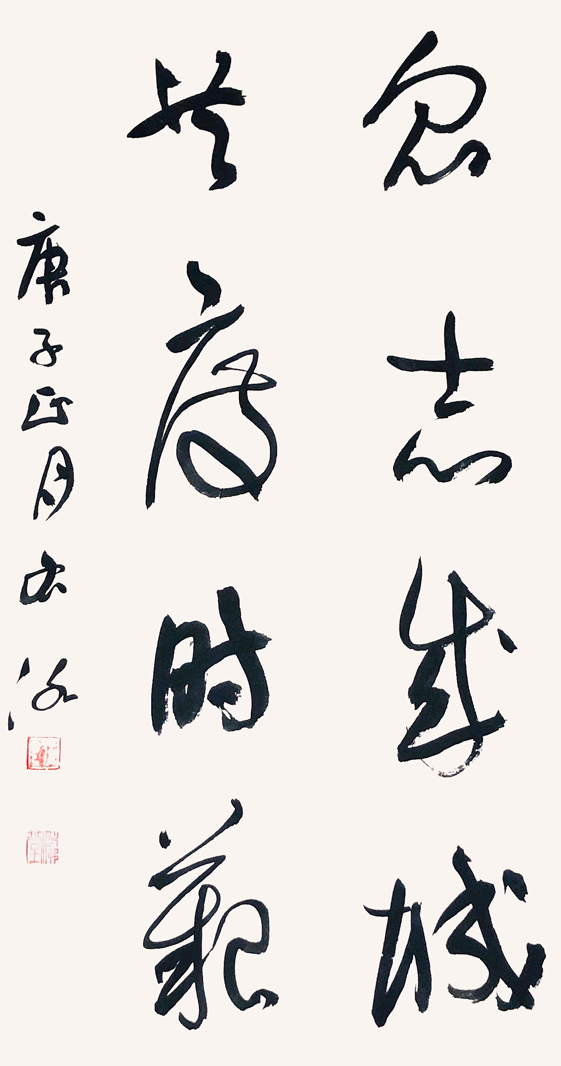 众志成城
共度时艰
庚子正月